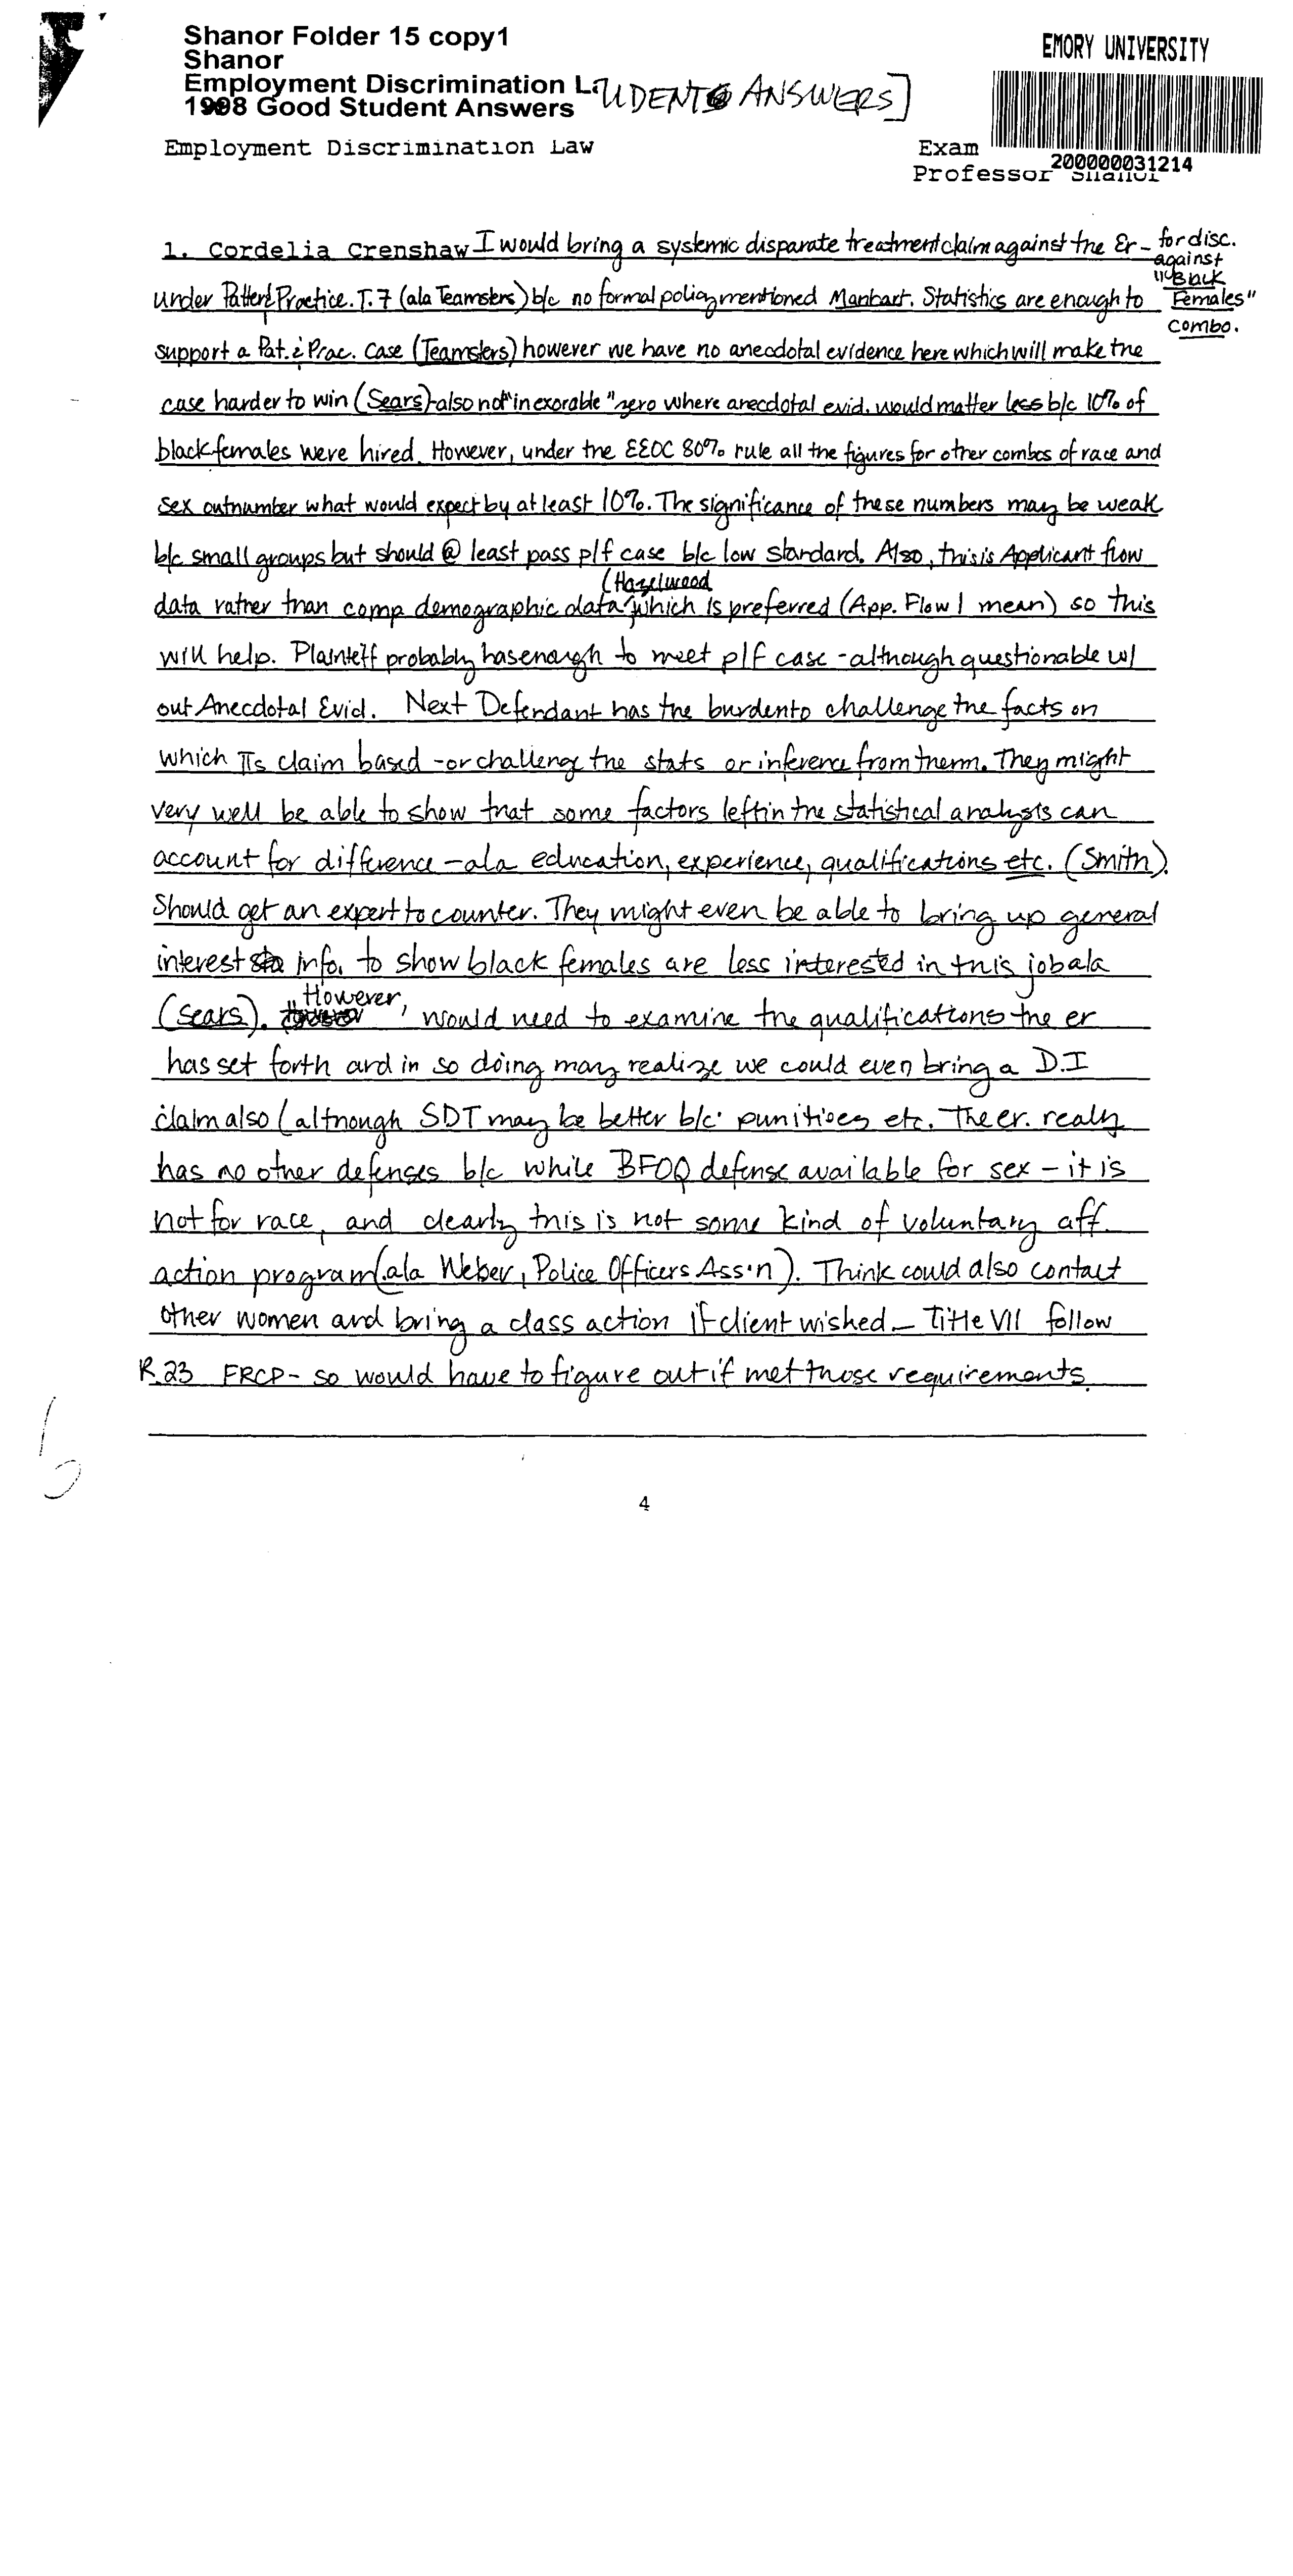 Shanor Folder 15 copy1
Shanor
Employment Discrimination La
1998 Good Student Answers
UDENTS ANSWERS]
EMORY UNIVERSITY
200000031214
Employment Discrimination Law
Exam
Professor Shanor
1. Cordelia Crenshaw I would bring a systemic disparate treatment claim against the Er - for disc. against "Black Females" combo.
under Pattern & Practice. T.7 (ala Teamsters) b/c no formal policy mentioned Manhart. Statistics are enough to
support a Pat. & Prac. case (Teamsters) however we have no anecdotal evidence here which will make the
case harder to win (Sears) - also not "inexorable" zero where anecdotal evid. would matter less b/c 10% of
black females were hired. However, under the EEOC 80% rule all the figures for other combos of race and
sex outnumber what would expect by at least 10%. The significance of these numbers may be weak
b/c small groups but should @ least pass p/f case b/c low standard. Also, this is Applicant flow
data rather than comp demographic data (Hazelwood which is preferred (App. Flow I mean) so this
will help. Plainteff probably has enough to meet p/f case - although questionable w/
out Anecdotal Evid. Next Defendant has the burden to challenge the facts on
which πs claim based - or challenge the stats or inference from them. They might
very well be able to show that some factors left in the statistical analysis can
account for difference - ala education, experience, qualifications etc. (Smith).
Should get an expert to counter. They might even be able to bring up general
interest info. to show black females are less interested in this job ala
(Sears). However, would need to examine the qualifications the er
has set forth and in so doing may realize we could even bring a D.I
claim also (although SDT may be better b/c punitives etc. The er. realy
has no other defenses b/c while BFOQ defense available for sex - it is
not for race, and clearly this is not some kind of voluntary aff.
action program (ala Weber, Police Officers Ass'n). Think could also contact
other women and bring a class action if client wished - Title VII follow
R.23 FRCP - so would have to figure out if met those requirements.
4